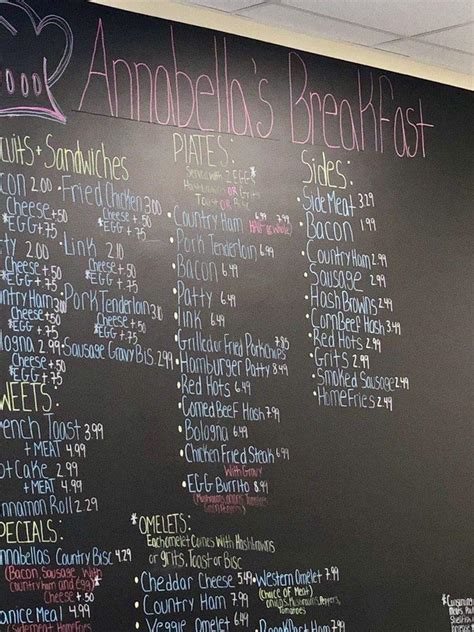 Annabella's Breakfast
cuits + Sandwiches
con 2.00
Cheese +50
*EGG +75
tty 2.00
Cheese +50
*EGG +75
ntry Ham 3.00
*EGG +75
logna 2.99
Cheese +50
*EGG +75
• Fried Chicken 3.00
Cheese +50
*EGG +75
• Link 2.10
Cheese +50
*EGG +75
• Pork Tenderloin 3.10
Cheese +50
*EGG +75
• Sausage Gravy Bis 2.99
WEETS:
ench Toast 3.99
+ MEAT 4.99
ot Cake 2.99
+ MEAT 4.98
innamon Roll 2.29
PECIALS:
nnabellas Country Bisc 4.29
(Bacon, Sausage
Country ham and egg)*
Cheese +50
anice Meal 4.99
PLATES:
Served with 2 EGG*
Hashbrowns OR Grits
Toast OR Bisc
• Country Ham 6.99 7.99
HALF or whole
• Pork Tenderloin 6.49
• Bacon 6.49
• Patty 6.49
• Link 6.49
• Grilled or Fried Porkchips 7.85
• Hamburger Patty 8.49
• Red Hots 6.49
• Corned Beef Hash 7.99
• Bologna 6.49
• Chicken Fried Steak 6.99
With Gravy
• EGG Burrito 8.99
(Mushrooms, onions, Tomatoes,
Green Peppers)
Sides:
• Side Meat 3.29
• Bacon 1.99
• Country Ham 2.99
• Sausage 2.99
• Hash Browns 2.49
• Corn Beef Hash 3.49
• Red Hots 2.99
• Grits 2.99
• Smoked Sausage 2.99
• Home Fries 2.49
*OMELETS:
Each omelet Comes with Hashbrowns
or grits, Toast or Bisc
• Cheddar Cheese 5.49
• Country Ham 7.99
• Veggie Omelet 6.99
• Western Omelet 7.99
(choice of Meat)
onions, Mushrooms, Peppers,
Tomatoes
• Breakfast Ham
*Consuming